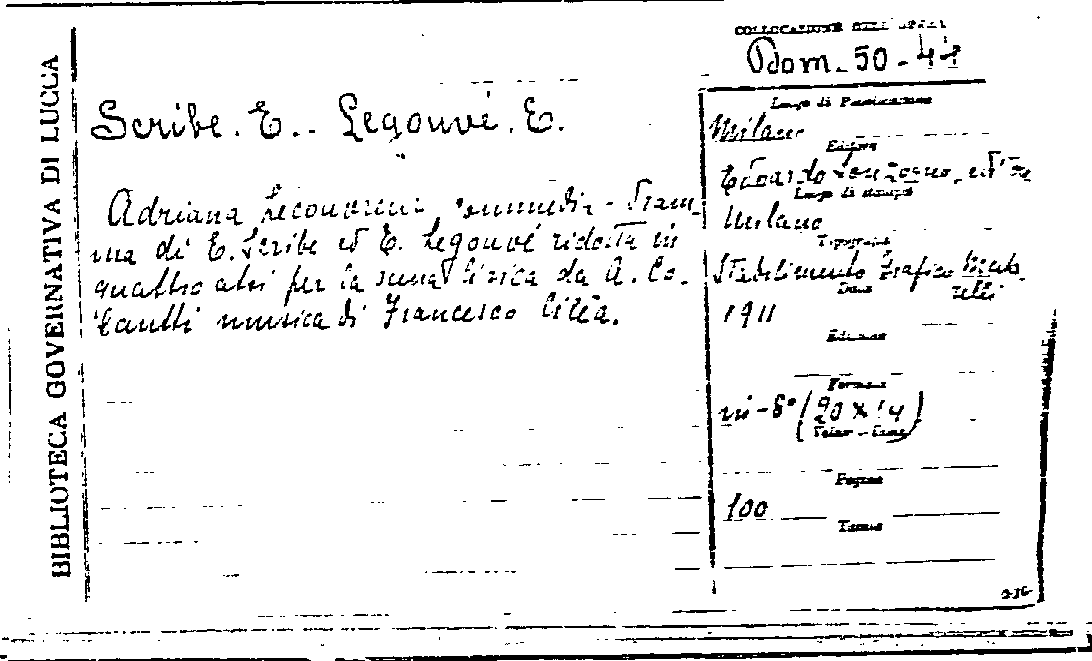 BIBLIOTECA GOVERNATIVA DI LUCCA
COLLOCAZIONE DELL'OPERA
Dom. 50 - 44
Scribe. E. - Legouvé. E.
Adriana Lecouvreur, commedia - dram-
ma di E. Scribe ed E. Legouvé ridotta in
quattro atti per la scena lirica da A. Co-
lautti musica di Francesco Cilèa.
Luogo di Pubblicazione
Milano
Editore
Edoardo Sonzogno, edit
Luogo di stampa
Milano
Tipografia
Stabilimento Grafico Mata-
relli
Data
1911
Edizione
Formato
in-8° (20 x 14)
Pagine
100
Tomo